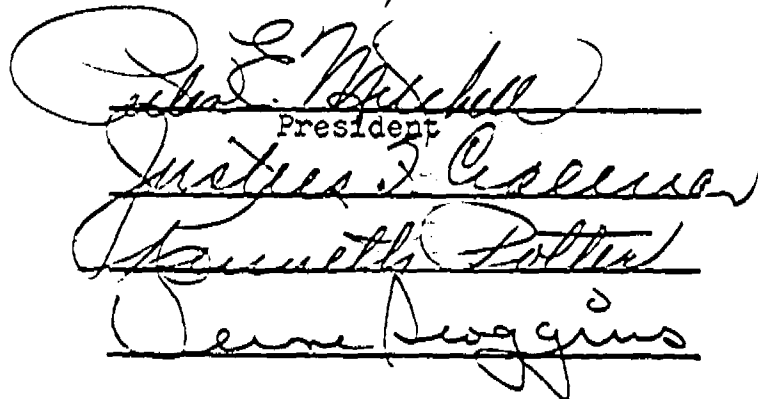 E. Mitchell
President
Justus F.
Kenneth Potter
Verne Scoggins